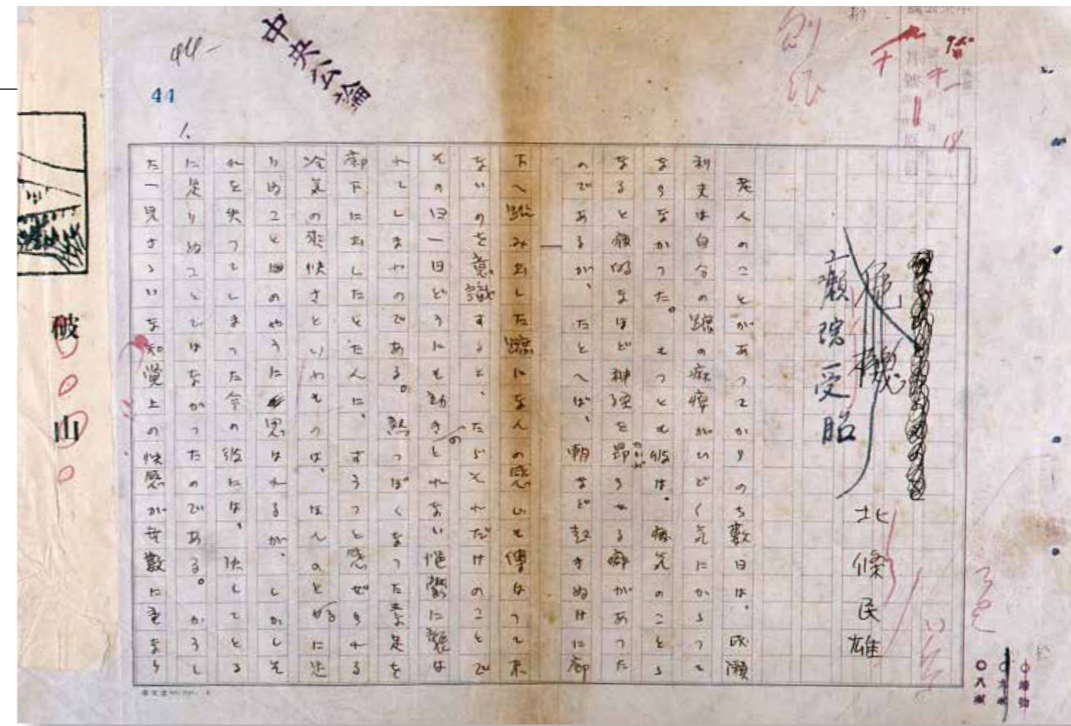 中央公論
44
44
1.
癩院受胎
北條民雄
老人のことがあつてからのち數日は、成瀬
利夫は自分の蹠の痲痺がひどく氣にかゝつて
ならなかつた。もつとも彼は、病氣のことゝ
なると病的なほど神經を昂らせる癖があつた
のであるが、たとへば、朝など起きぬけに廊
下へ踏み出した蹠になんの感じも傳はつて來
ないのを意識すると、たゞそれだけのことで
その日一日どうにも動きのとれない憂鬱に襲は
れてしまふのである。熱つぽくなつた素足を
廊下におろしたとたんに、すうつと感ぜられる
冷氣の爽快さといふものは、ほんのとるに足
りぬことのやうに思はれるが、しかしそ
れを失つてしまつた今の彼には、決してとる
に足りぬことではなかつたのである。かうし
た一見さゝいな知覺上の快感が無數に重なり
破
山